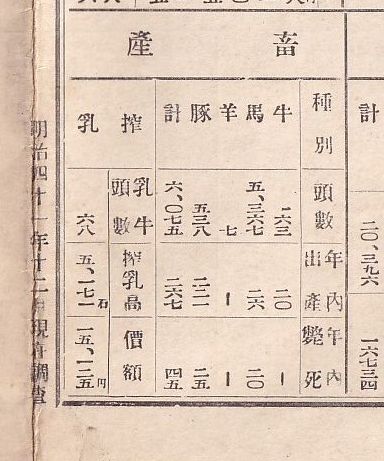 畜產
計 二〇、三九六 一六七三四
種別 頭數 年內出產 年內斃死
牛 一六三 二〇 ー
馬 五、三六七 二六 二〇
羊 七 ー ー
豚 五三八 二二一 二五
計 六、〇七五 二六七 四五
搾乳 乳牛頭數 搾乳高 價額
六八 五、一七一石 一五、一二五円
明治四十一年十二月現在調查